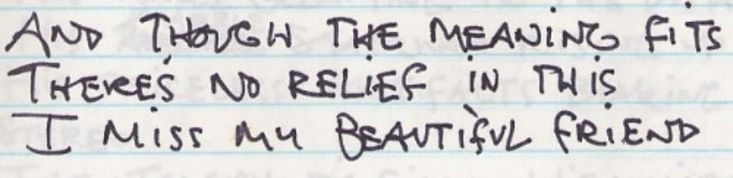 AND THOUGH THE MEANING FITS
THERE'S NO RELIEF IN THIS
I MISS MY BEAUTIFUL FRIEND